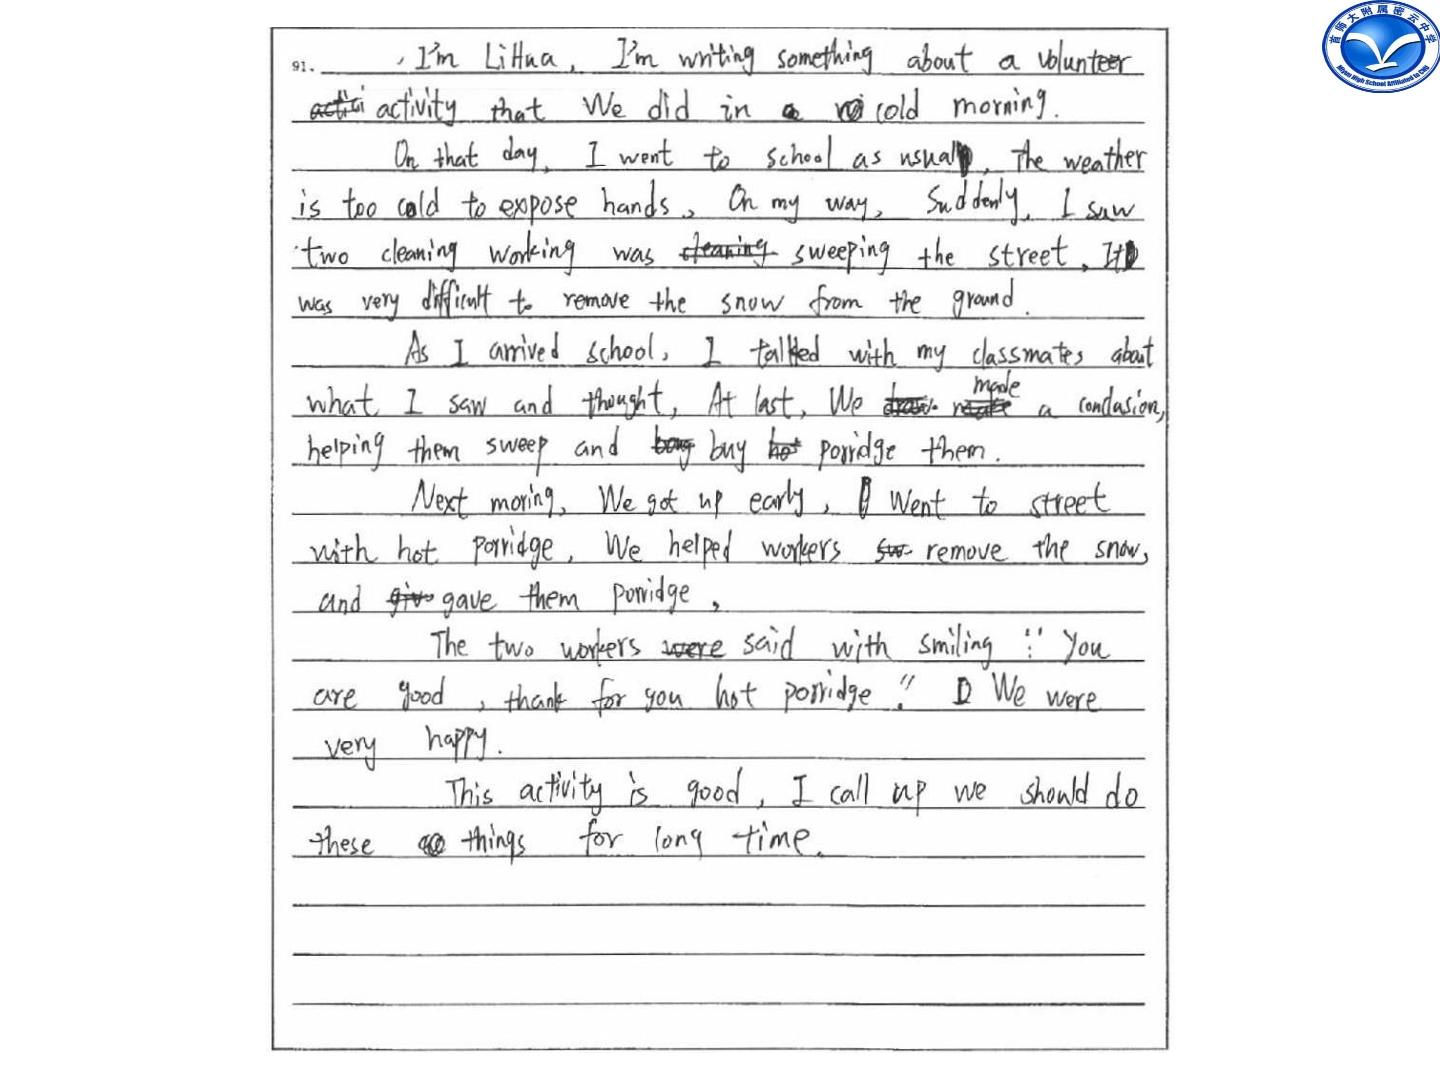 91. I'm LiHua, I'm writing something about a volunteer
activity that We did in cold morning.
On that day, I went to school as usual, The weather
is too cold to expose hands, On my way, Suddenly, I saw
two cleaning working was sweeping the street, It
was very difficult to remove the snow from the ground.
As I arrived school, I talked with my classmates about
what I saw and thought, At last, We made a conclusion,
helping them sweep and buy porridge them.
Next moring, We got up early, Went to street
with hot porridge, We helped workers remove the snow,
and gave them porridge,
The two workers said with smiling : "You
are good, thank for you hot porridge." We were
very happy.
This activity is good, I call up we should do
these things for long time.
首师大附属密云中学
Miyun High School Affiliated to CNU